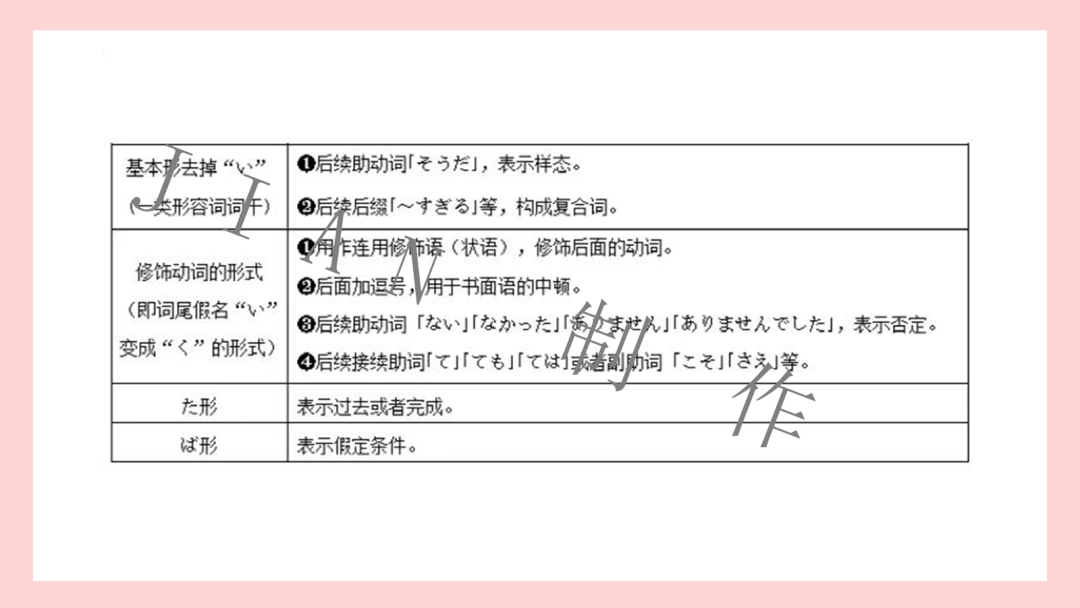 基本形去掉“い”
（一类形容词词干）
❶后续助动词「そうだ」，表示样态。
❷后续后缀「～すぎる」等，构成复合词。
修饰动词的形式
（即词尾假名“い”
变成“く”的形式）
❶用作连用修饰语（状语），修饰后面的动词。
❷后面加逗号，用于书面语的中顿。
❸后续助动词「ない」「なかった」「ありません」「ありませんでした」，表示否定。
❹后续接续助词「て」「ても」「ては」或者副助词「こそ」「さえ」等。
た形
表示过去或者完成。
ば形
表示假定条件。
JIAN制作